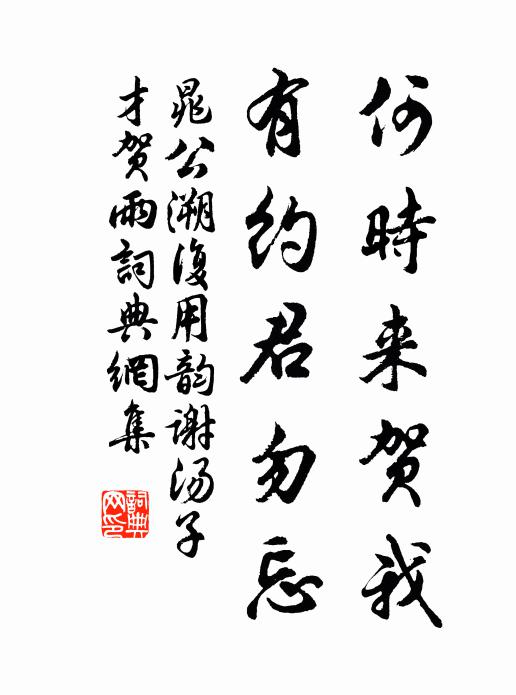 何時来贺我
有约君勿忘
晁公溯復用韵谢汤子
才贺雨詞典網集
詞典网印